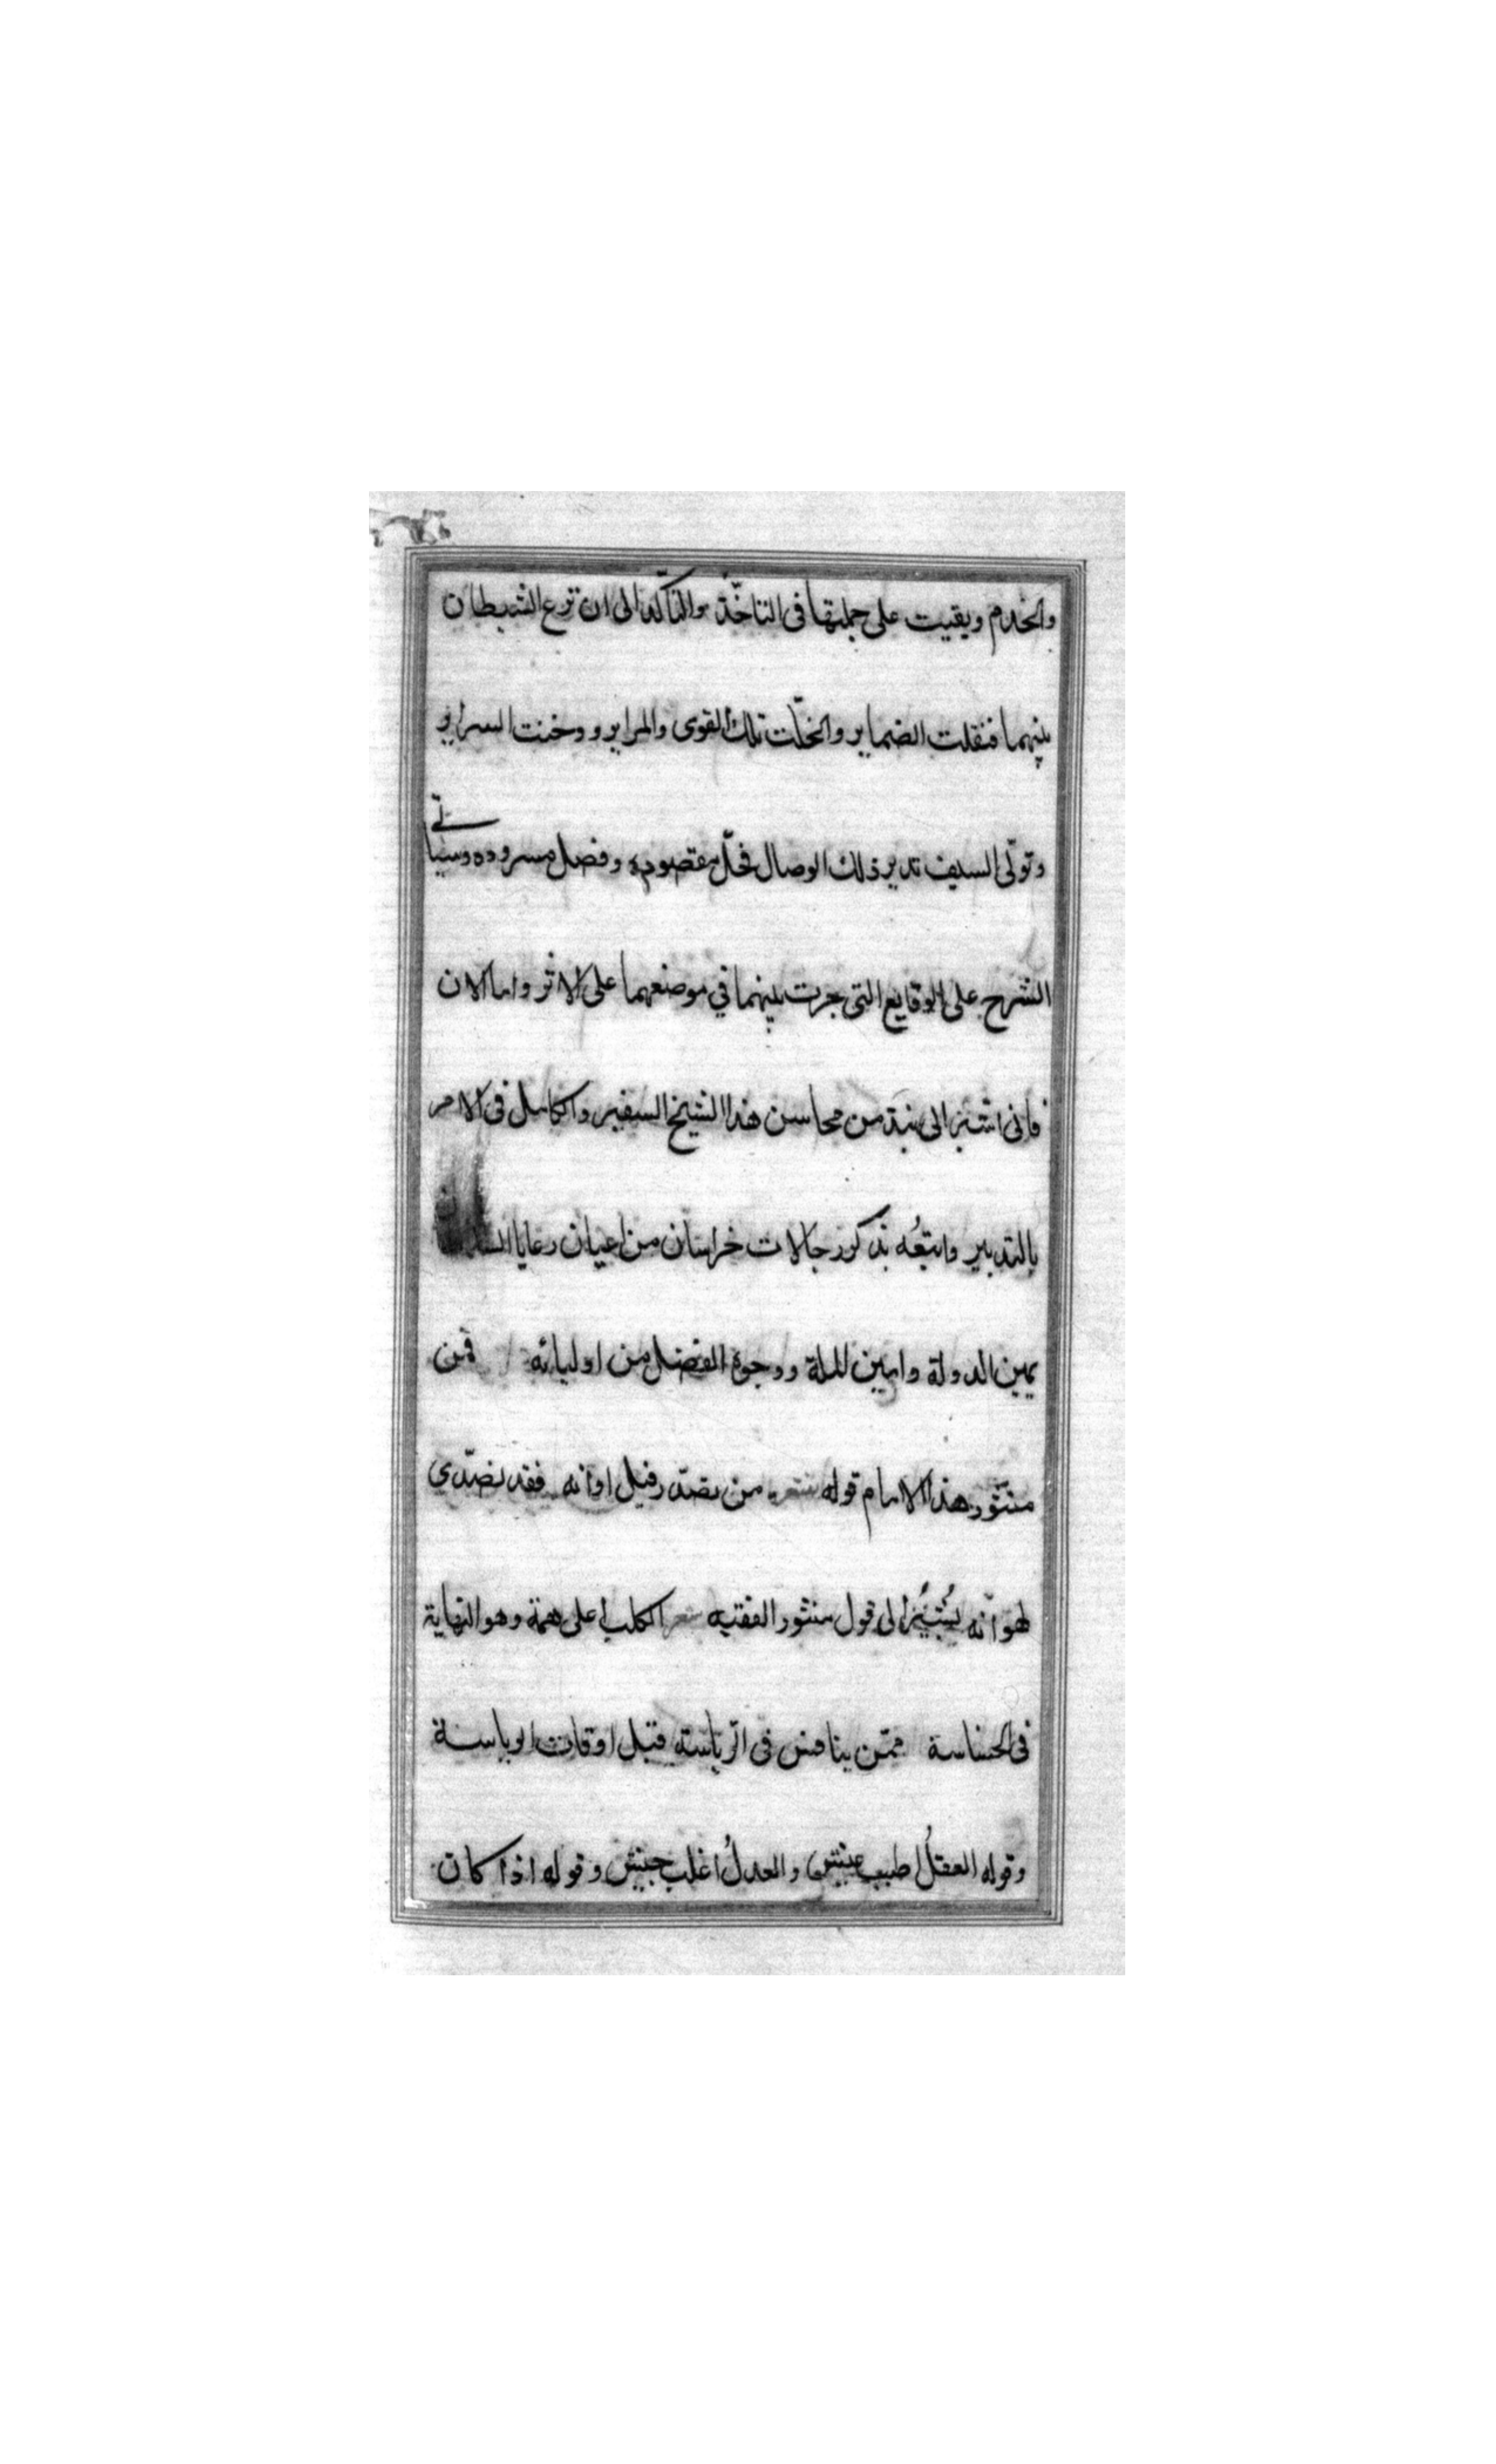 والخدم وبقيت على جملتها فى التاخّذ والتأكّد الى ان نزع الشيطان
بينهما فنقلت الضماير وانحلّت تلك القوى والمراير ودخنت السراير
وتولّى السيف تدبير ذلك الوصال فحلّ مقصوده وفصل مسروده وسيأتى
الشرح على الوقايع التى جرت بينهما في موضعهما على الاثر واما الان
فانى اشير الى نبذ من محاسن هذا الشيخ السفير والكامل فى الامر
بالتدبير واتبعُه بذكور رجالات خراسان من اعيان رعايا
يمين الدولة وامين الملة ووجوه الفضل من اوليائه فمن
منثور هذا الامام قوله شعر من تصدّر قبل اوانه فقد تصدّى
لهوانه يُشير الى قول منثور الفقيه شعر الكلب اعلى همة وهو النهاية
فى الخساسة ممّن ينافس فى الرّياسة قبل اوقات الرياسة
وقوله العقلُ اطيب عيش والعدلُ اغلب جيش وقوله اذا كان